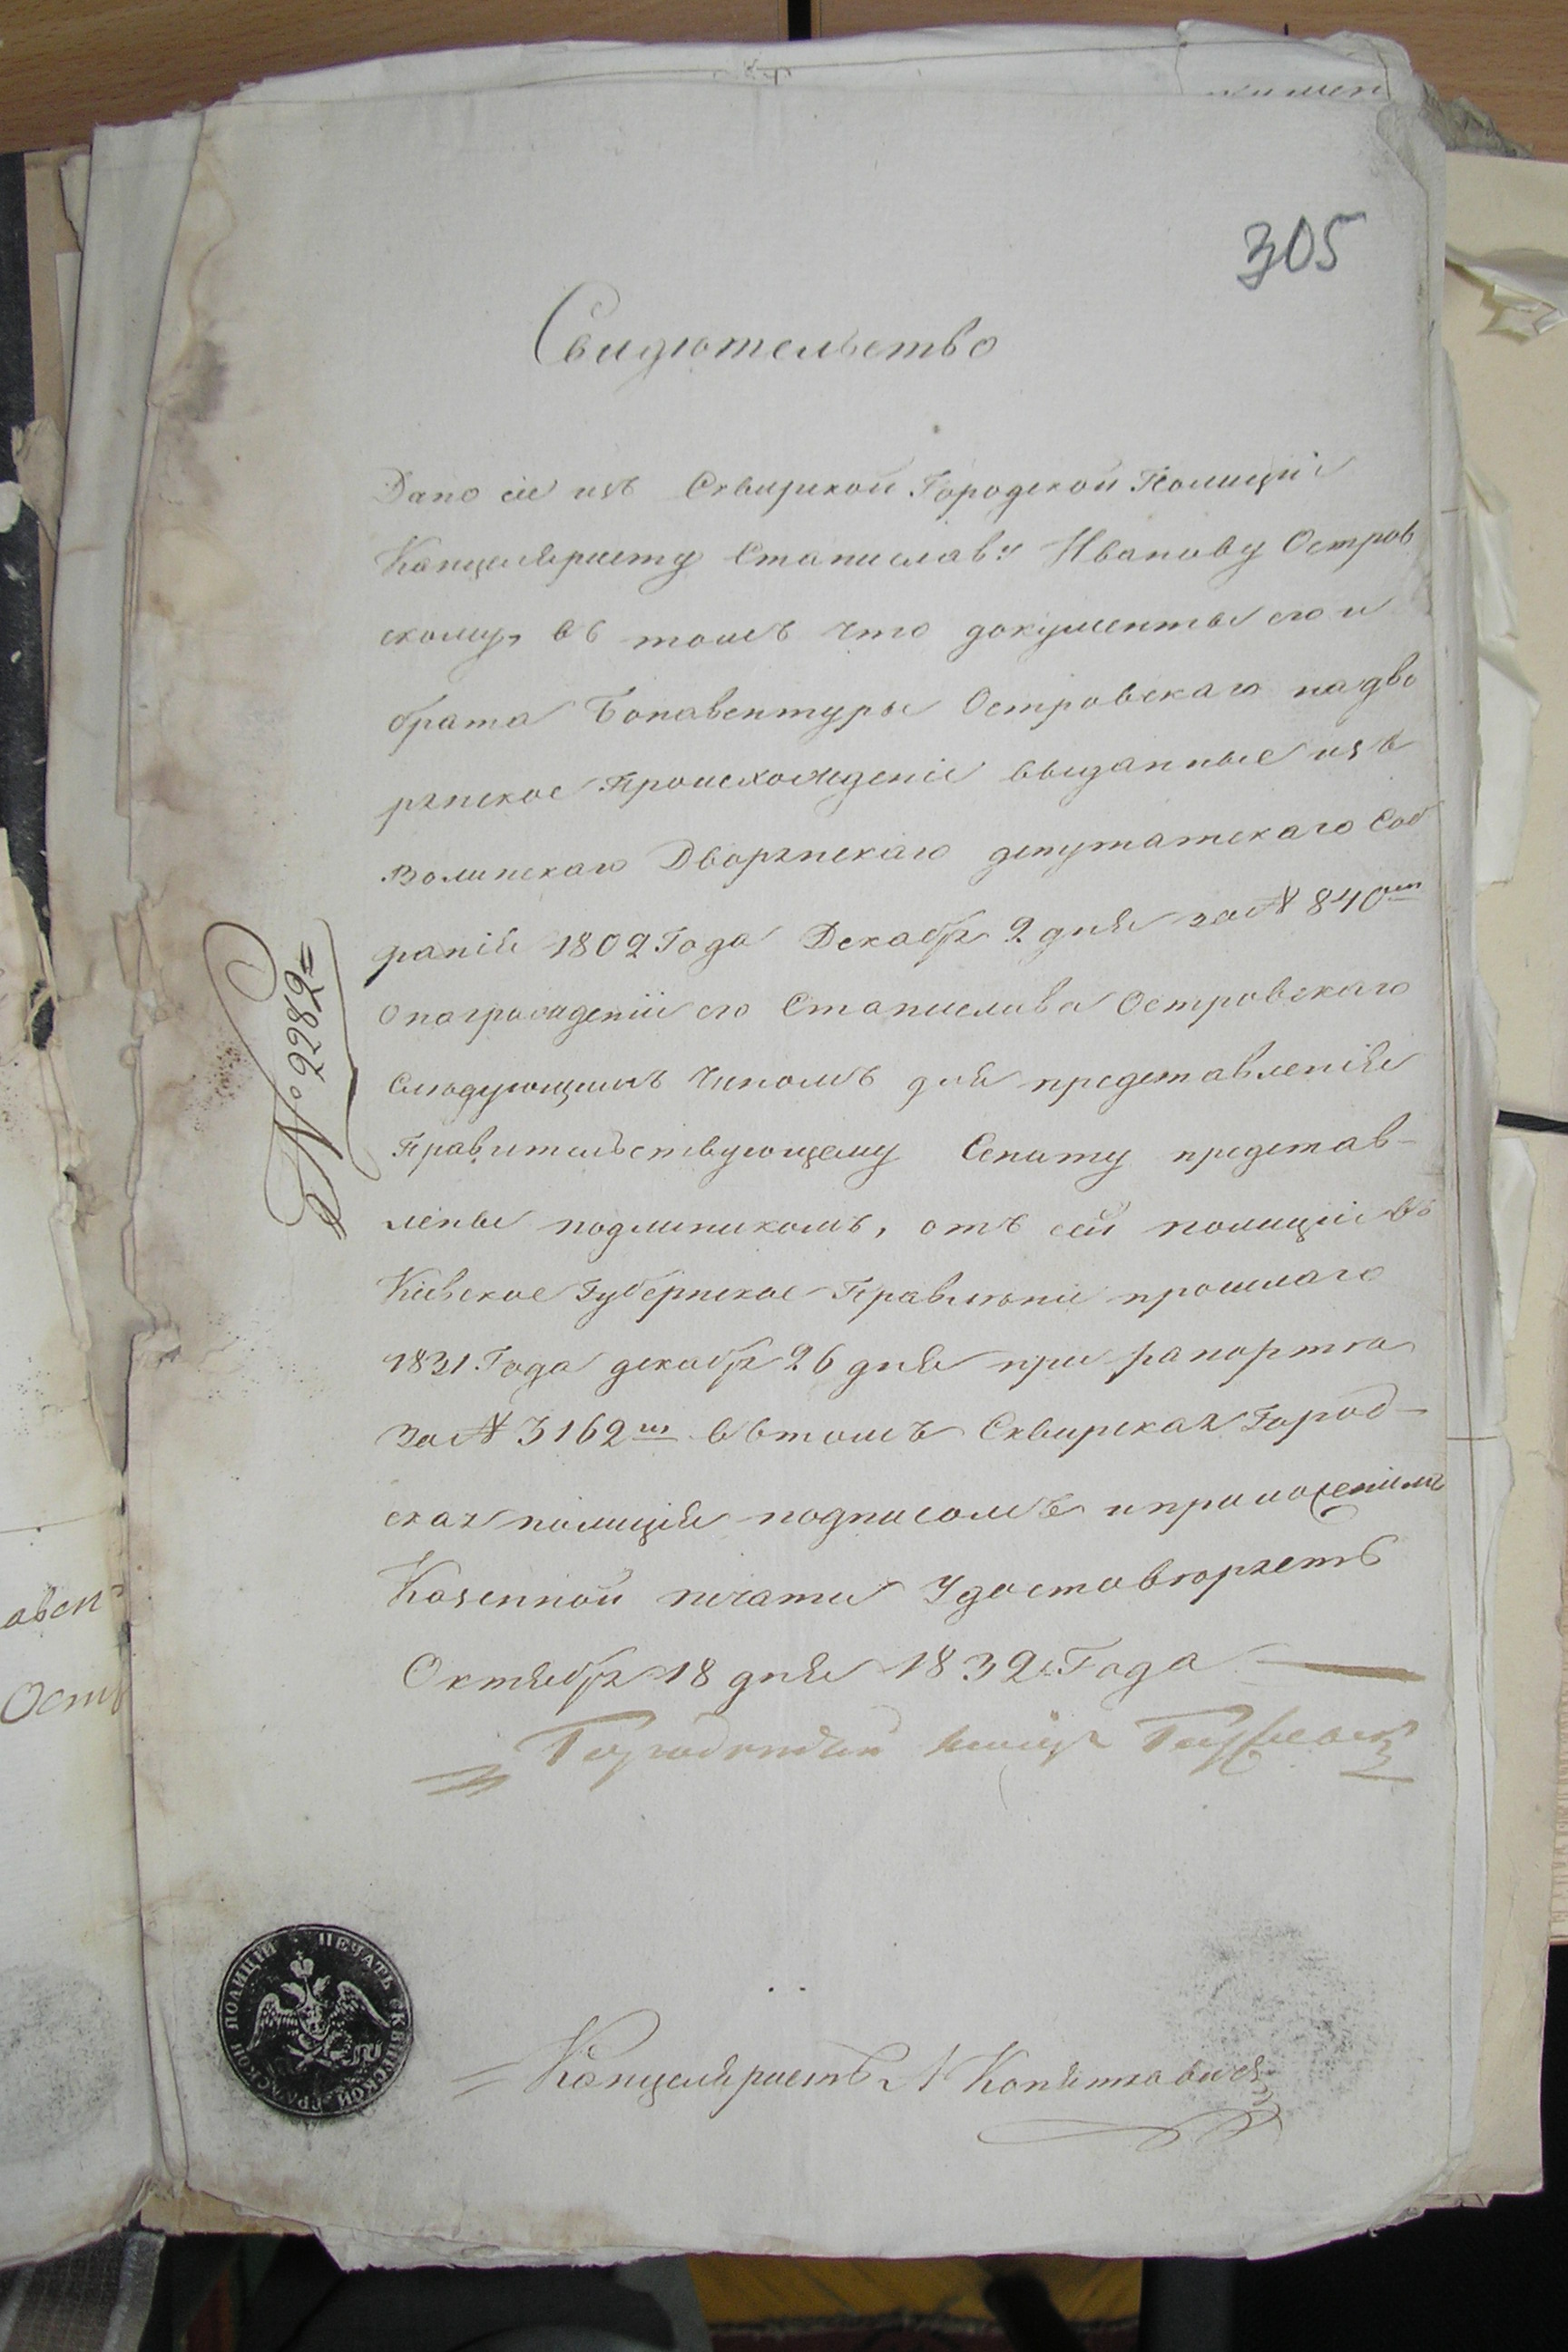 305
Свидѣтельство
Дано сіе изъ Сквирской Городской Полиціи
Канцеляристу Станиславу Иванову Остров
скому, въ томъ что документы его и
брата Бонавентуры Островскаго на дво
рянское Происхожденіе выданные изъ
Волинскаго Дворянскаго депутатскаго Соб
ранія 1802 Года Декабря 2 дня за № 840м
о награжденіи его Станислава Островскаго
Слѣдующимъ Чиномъ для представленія
Правительствующему Сенату представ-
лены подлиникомъ, отъ сей полиціи въ
Кіевское Губернское Правленіе прошлаго
1831 Года декабря 26 дня при рапортѣ
За № 3162м въ томъ Сквирская Город-
ская полиція подписомъ и приложеніемъ
Казенной печати Удостовѣряетъ
Октября 18 дня 1832 Года
№ 2282
Городничій
Канцеляристъ
ПЕЧАТЬ СКВИРСКОЙ ГРАДСКОЙ ПОЛИЦІИ
авен
Остр